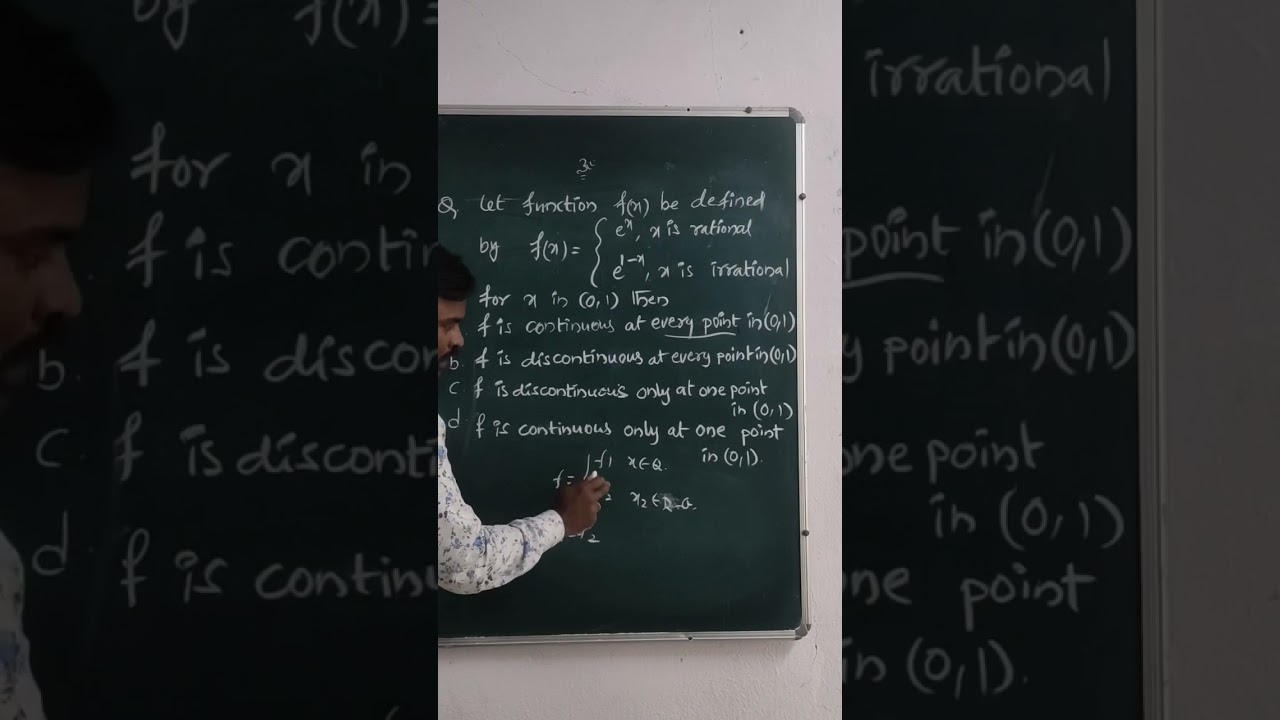 3.
Q, Let function f(x) be defined
by f(x)= { e^x, x is rational
e^1-x, x is irrational
for x in (0,1) Then
f is continuous at every point in (0,1)
b. f is discontinuous at every point in (0,1)
c. f is discontinuous only at one point
in (0,1)
d. f is continuous only at one point
in (0,1).
f = { f1 x∈Q.
2 x2∈R-Q.
2